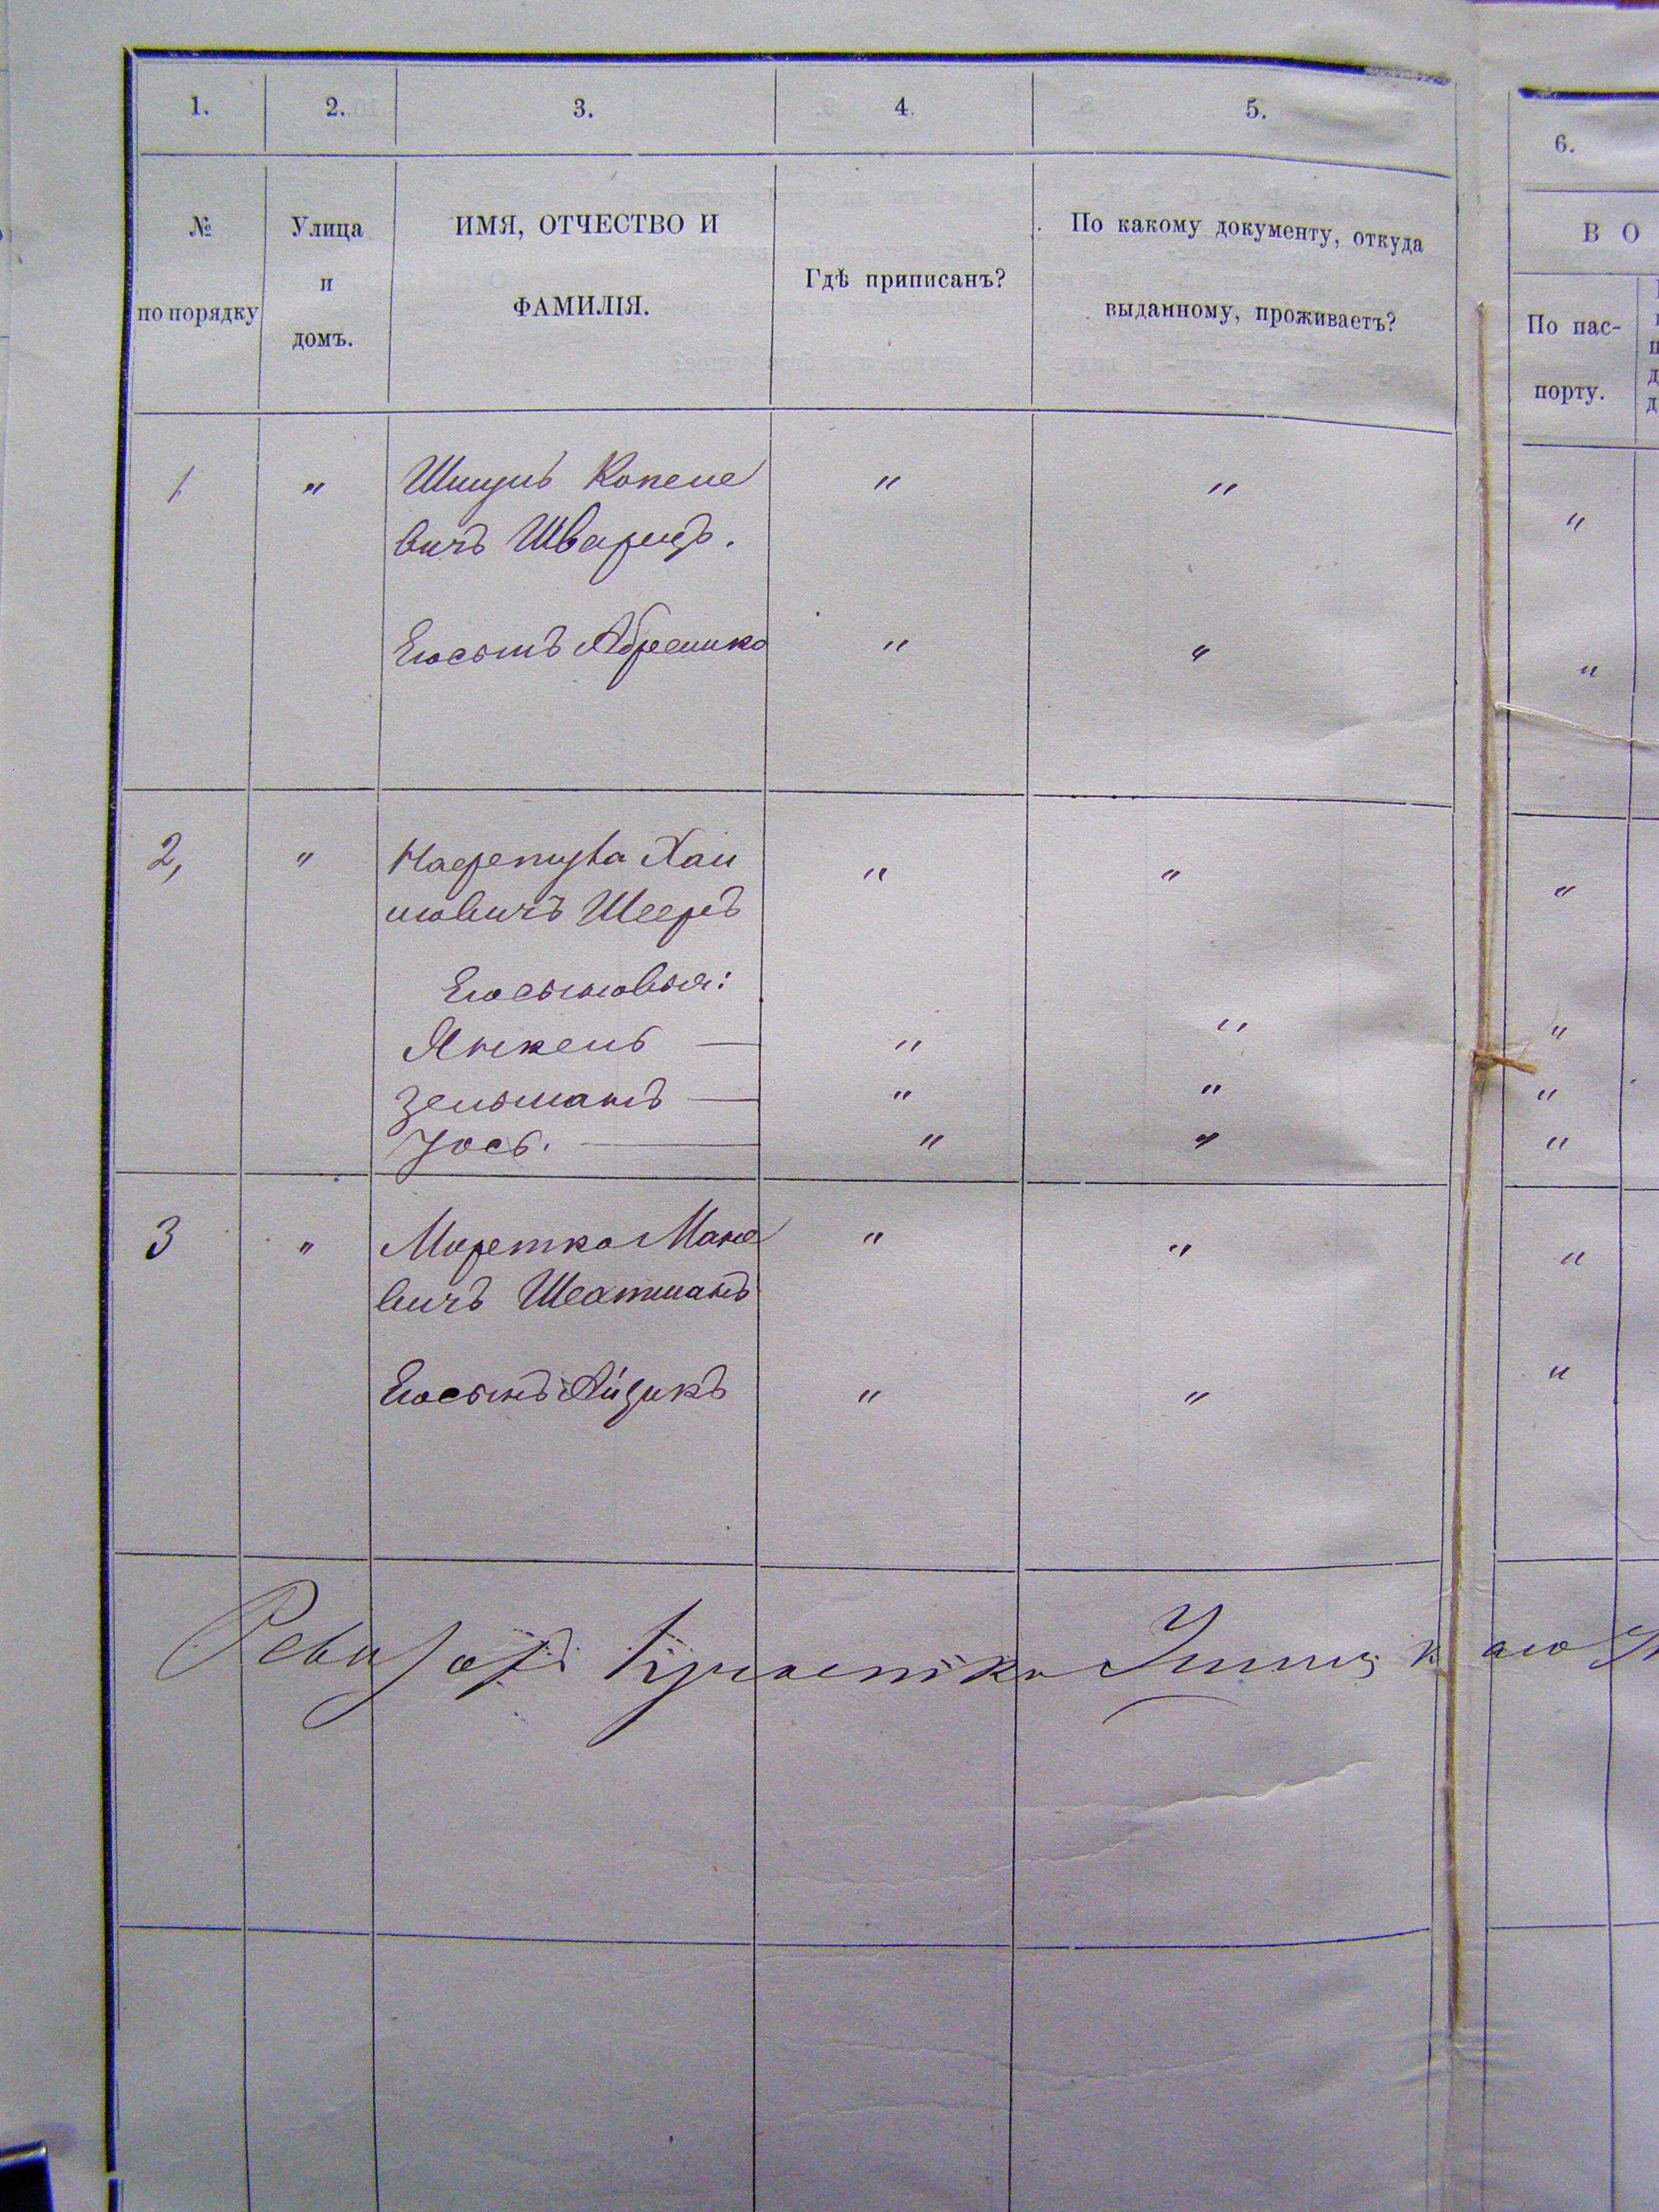 1. 2. 3. 4. 5. 6.
№ по порядку
Улица и домъ.
ИМЯ, ОТЧЕСТВО И ФАМИЛІЯ.
Гдѣ приписанъ?
По какому документу, откуда выданному, проживаетъ?
В О
По пас-
порту.
1 " Шмуль Копеле " " "
вичъ Шварцъ.
Его сынъ Абрамко " " "
2, " Хаи " " "
мовичъ Шееръ
Его сыновья:
Янкель — " " "
Зельманъ — " " "
Іось. — " " "
3 " Мортко Мано " " "
вичъ
Его сынъ Айзикъ " " "
Ревизоръ